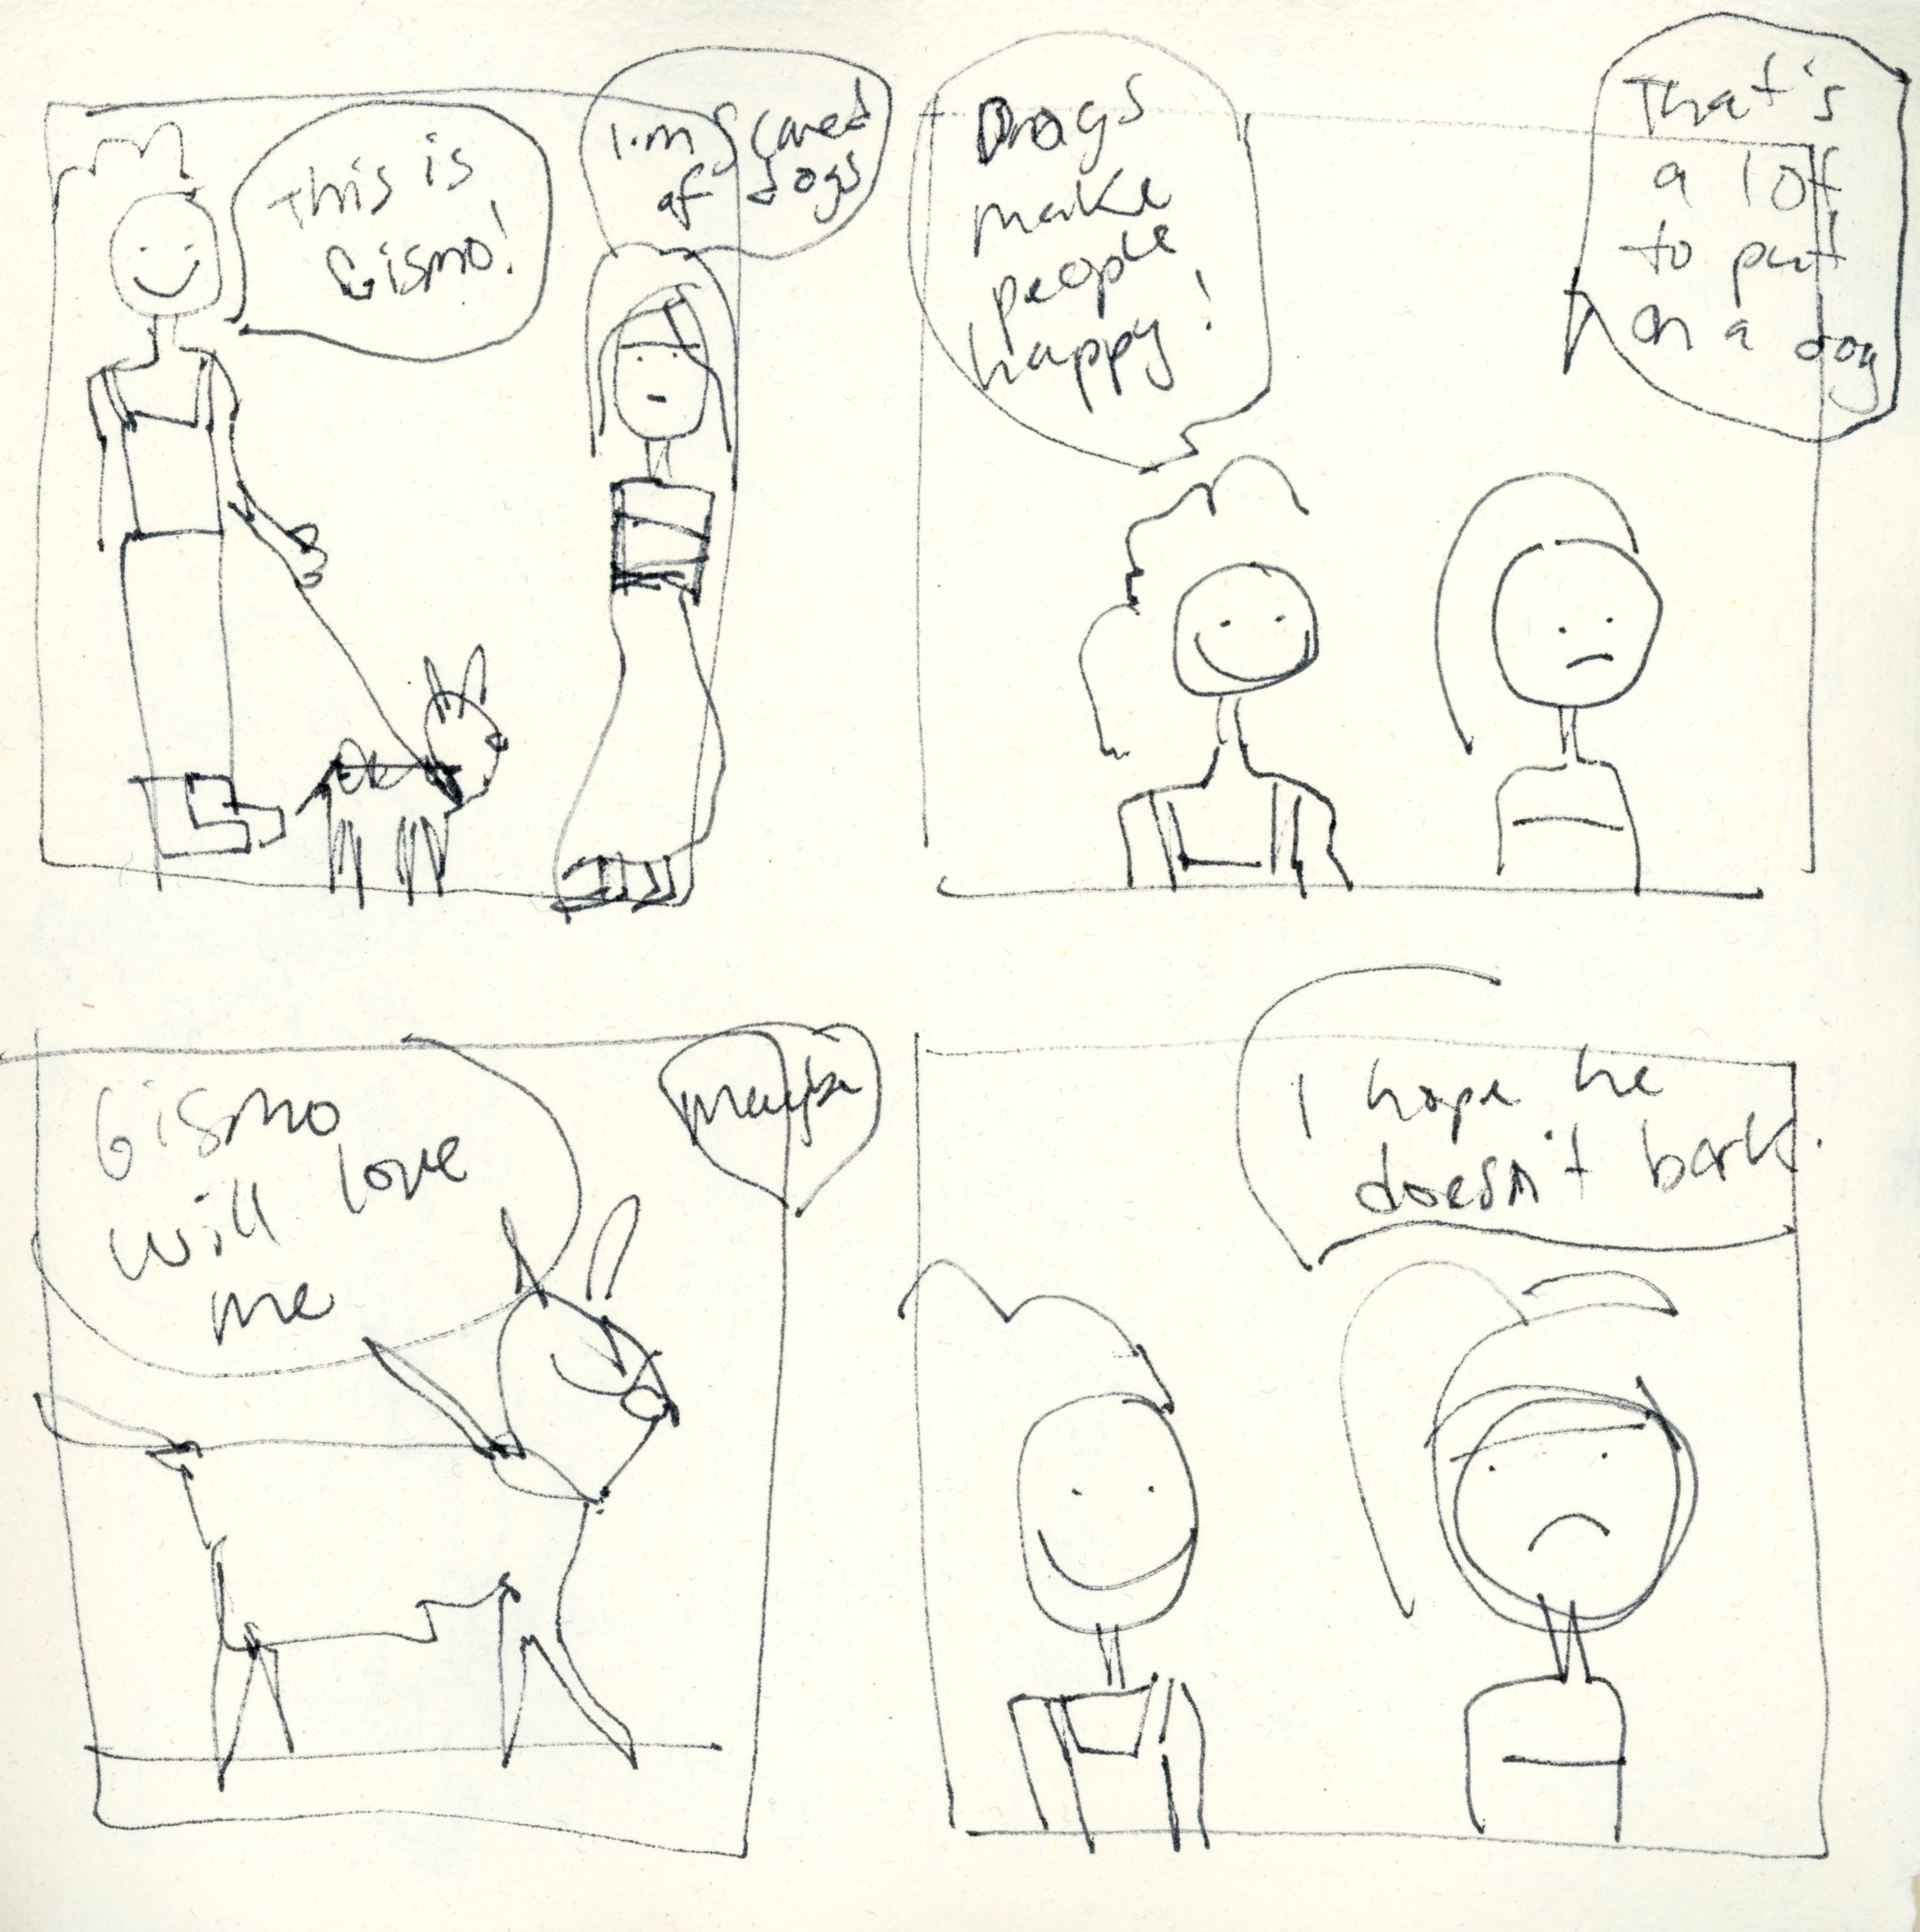 This is
Gismo!
I'm scared
of dogs
Dogs
make
people
happy!
That's
a lot
to put
on a dog
Gismo
will love
me
maybe
I hope he
doesn't bark.